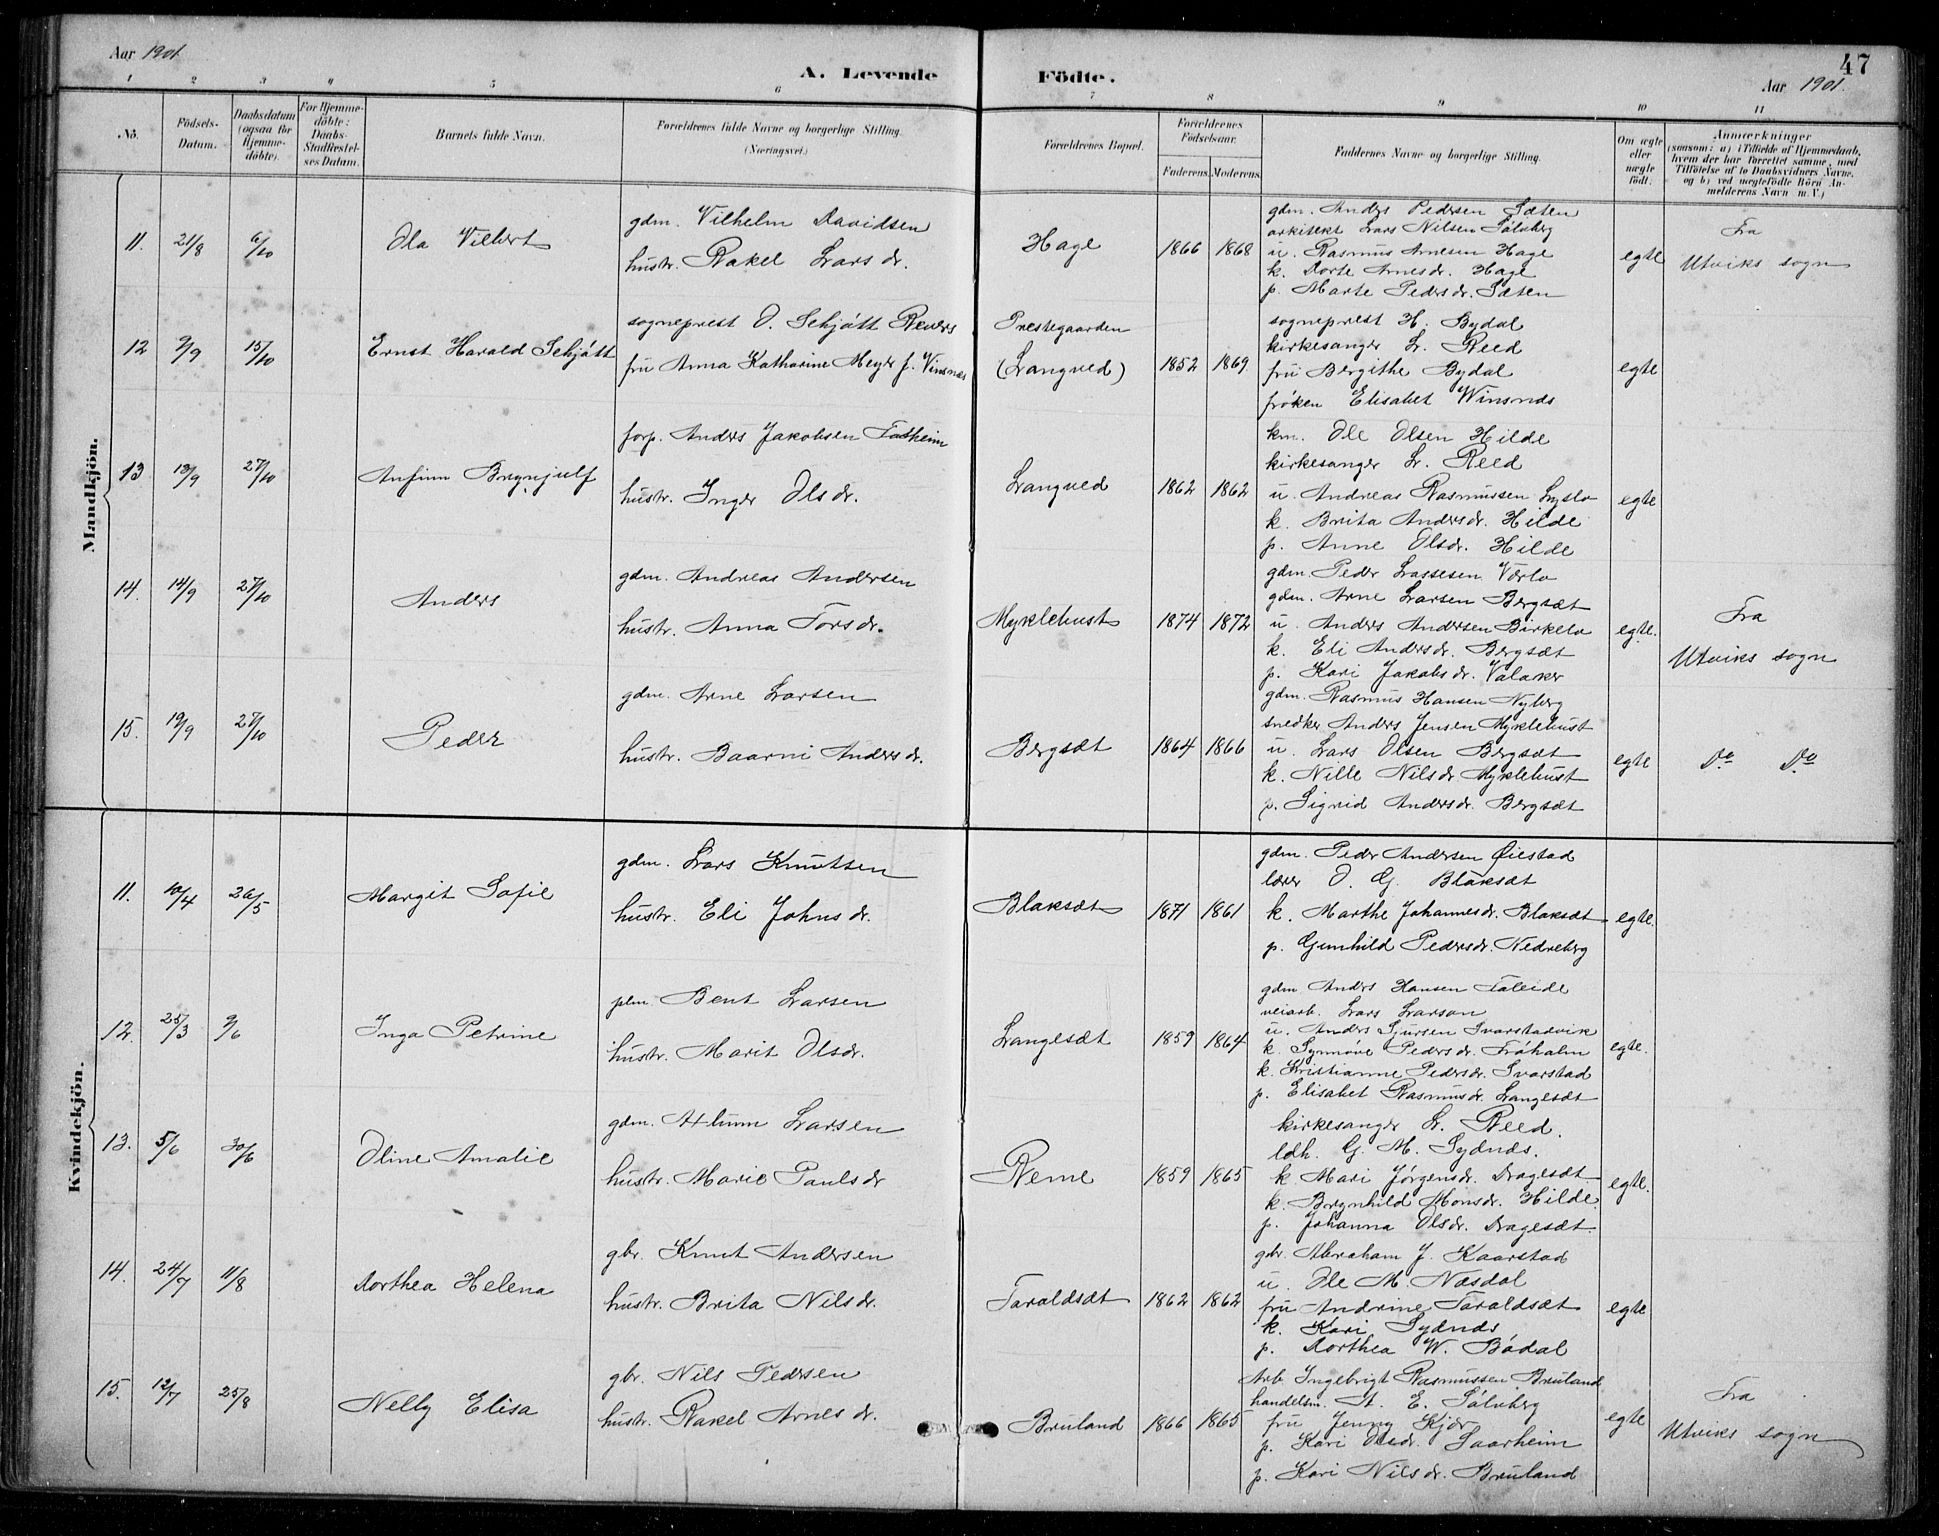 Aar 1901.
A. Levende Födte.
47
Aar 1901.
1 2 3 4 5 6 7 8 9 10 11
No.
Födsels-Datum.
Daabsdatum (ogsaa for Hjemmedöbte).
For Hjemmedöbte: Daabs-Stadfæstelses Datum.
Barnets fulde Navn.
Forældrenes fulde Navne og borgerlige Stilling. (Næringsvei.)
Forældrenes Bopæl.
Forældrenes Födselsaar. Faderens. Moderens.
Faddernes Navne og borgerlige Stilling.
Om ægte eller uægte födt.
Anmærkninger (saasom: a) i Tilfælde af Hjemmedaab, hvem der har forrettet samme, med Tilföielse af to Daabsvidners Navne. og b) ved uægtefödte Börn Anmelderens Navn m. V.)
Mandkjön.
11. 21/8 6/10 Ola Vilbert
gdm. Vilhelm Davidsen
hustr. Rakel Larsdr.
Hage 1866 1868
gdm. Anders Pedersen Sæten
arkitekt Lars Nilsen Sölvberg
u. Rasmus Arnesen Hage
k. Dorte Arnesdr. Hage
p. Marte Pedersdr. Sæten
egte
Fra
Utviks sogn
12 9/9 15/10 Ernst Harald Schjött
sogneprest O. Schjött
fru Anna Katharine Meyer f. Vinsnæs
Prestegaarden
(Langved) 1852 1869.
sogneprest H. Bydal
kirkesanger L. Reed
fru Bergithe Bydal
fröken Elisabet Winsnes
egte
13 13/9 27/10 Anfinn Brynjulf
forp. Anders Jakobsen Tatheim
hustr. Inger Olsdr.
Langved 1862 1862
km. Ole Olsen Hilde
kirkesanger L. Reed
u. Andreas Rasmussen Lyslo
k. Brita Andersdr. Hilde
p. Anne Olsdr. Hilde
egte
14. 14/9 27/10 Anders
gdm. Andreas Andersen
hustr. Anna Torsdr.
Myklebust 1874 1872
gdm. Peder Lassesen Værlo
gdm. Arne Larsen Bergsæt
u. Anders Andersen Birkelo
k. Eli Andersdr. Bergsæt
p. Kari Jakobsdr. Valaker
egte.
Fra
Utviks sogn
15. 19/9 27/10 Peder
gdm. Arne Larsen
hustr. Baarni Andersdr.
Bergsæt 1864 1866
gdm. Rasmus Hansen Nyberg
snedker Anders Jensen Myklebust
u. Lars Olsen Bergsæt
k. Nille Nilsdr. Myklebust
p. Sigrid Andersdr. Bergsæt
egte
Do Do
Kvindekjön.
11. 10/4 26/5 Margit Sofie
gdm. Lars Knutsen
hustr. Eli Johnsdr.
Blaksæt 1871 1861
gdm. Peder Andersen Öiestad
lærer O. G. Blaksæt
k. Marthe Johannesdr. Blaksæt
p. Gunhild Pedersdr. Nedreberg
egte.
12. 25/3 9/6 Inga Petrine
plm. Bent Larsen
hustr. Marit Olsdr.
Langesæt 1859 1864
gdm Anders Hansen Faleide
veiarb. Lars Larson
u. Anders Sjursen Svarstadvik
k. Synnöve Pedersdr. Fröholm
k. Kristianne Pedersdr. Svarstad
p. Elisabet Rasmusdr. Langesæt
egte.
13. 5/6 30/6 Oline Amalie
gdm. Larsen
hustr. Marie Paulsdr
Reme 1859 1865
kirkesanger L. Reed.
ldh. G. M. Sydnæs.
k Mari Jörgensdr. Dragesæt
k. Brynhild Monsdr. Hilde
p. Johanna Olsdr. Dragesæt.
egte.
14. 24/7 11/8 Dorthea Helena
gbr. Knut Andersen
hustr. Brita Nilsdr.
Taraldsæt 1862 1862
gbr. Abraham J. Kaarstad
u. Ole M. Næsdal
fru Andrine Taraldsæt
k. Kari Sydnæs
p. Dorthea W. Bödal
egte
15. 12/7 25/8 Nelly Elisa
gbr. Nils Pedersen
hustr. Rakel Arnesdr.
Bruland 1866 1865
Arb Ingebrigt Rasmussen Bruland
handelsm. A. E. Sölvberg
fru Jenny Kjær
p. Kari Olsdr. Saarheim
p. Kari Nilsdr. Bruland
egte
Fra
Utviks sogn